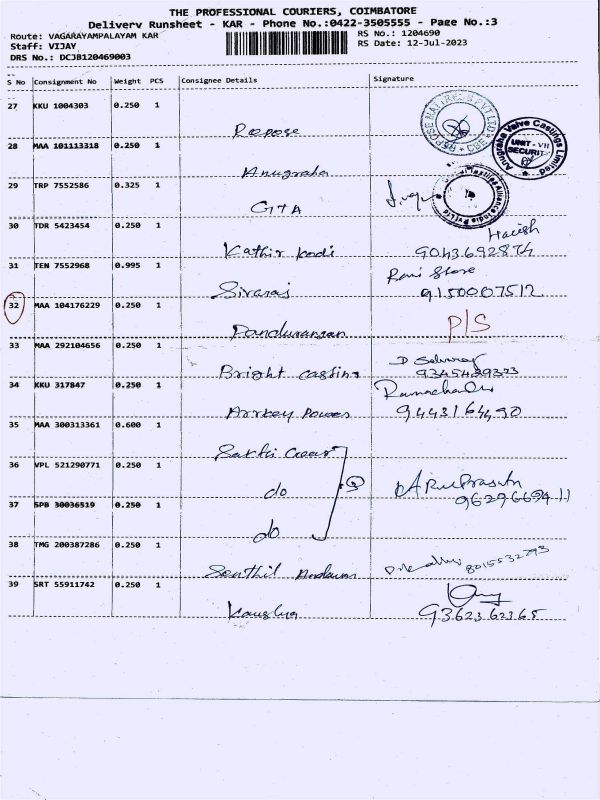 THE PROFESSIONAL COURIERS, COIMBATORE
Delivery Runsheet - KAR - Phone No.:0422-3505555 - Page No.:3
Route: VAGARAYAMPALAYAM KAR RS No.: 1204690
Staff: VIJAY RS Date: 12-Jul-2023
DRS No.: DCJB120469003
S No Consignment No Weight PCS Consignee Details Signature
27 KKU 1004303 0.250 1
Repose
28 MAA 101113318 0.250 1
Anugraha
29 TRP 7552586 0.325 1
GTA
30 TDR 5423454 0.250 1 Harish
Kathir kadi 9043692874
31 TEN 7552968 0.995 1 Rani Store
Sivaraj 9150007512
32 MAA 104176229 0.250 1
Pandurangan P/S
33 MAA 292104656 0.250 1
Bright casting 9345429323
34 KKU 317847 0.250 1
Arrkey Power 9443164490
35 MAA 300313361 0.600 1
Sakthi Gear
36 VPL 521290771 0.250 1
do 9629669411
37 SPB 30036519 0.250 1
do
38 TMG 200387286 0.250 1
Senthil 8015532793
39 SRT 55911742 0.250 1
Kauslya 9362362365
REPOSE MATTRESS PVT LTD CBE
Anugraha Valve Castings Limited
UNIT - VII
SECURITY